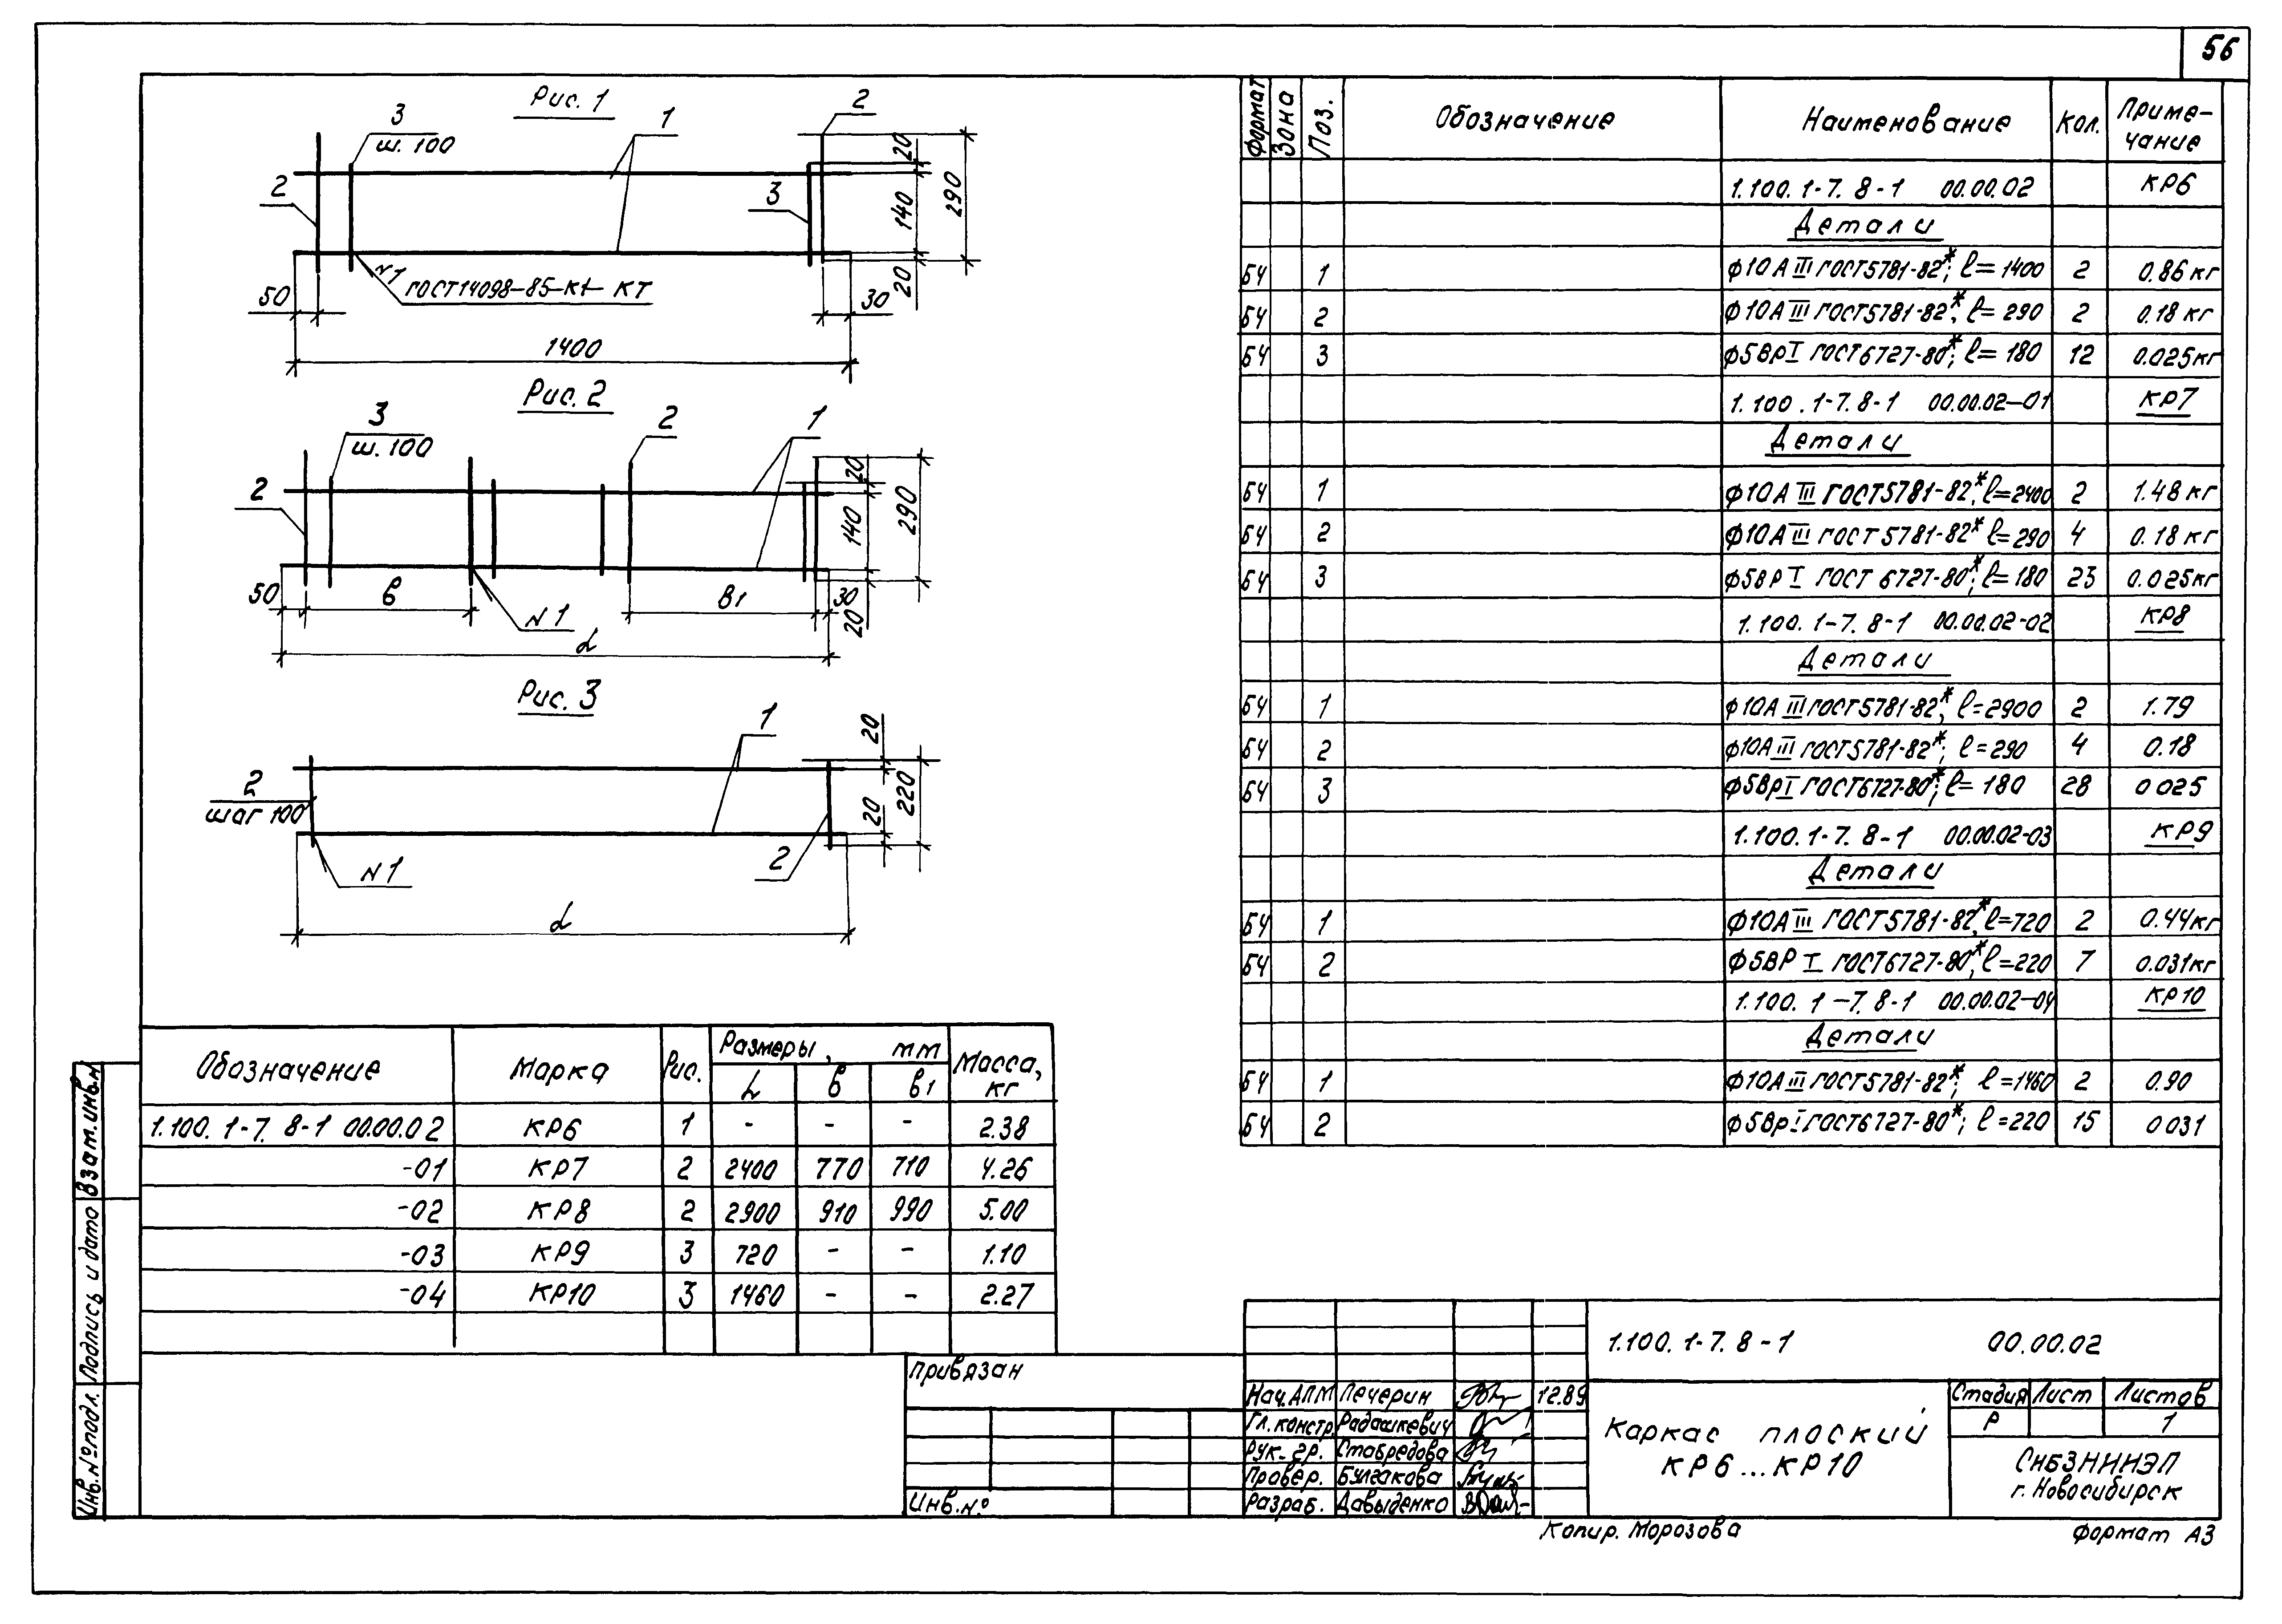 56
Рис. 1
3
ш. 100
1
2
2
3
20
140
290
20
№1
ГОСТ14098-85-К1-КТ
50
30
1400
Рис. 2
3
ш. 100
2
1
2
20
140
290
50
в
№1
в1
30
20
L
Рис. 3
1
20
220
20
2
шаг 100
№1
2
L
Обозначение Марка Рис. Размеры, мм Масса, кг
L в в1
1.100.1-7.8-1 00.00.02 КР6 1 - - - 2.38
-01 КР7 2 2400 770 710 4.26
-02 КР8 2 2900 910 990 5.00
-03 КР9 3 720 - - 1.10
-04 КР10 3 1460 - - 2.27
Формат Зона Поз. Обозначение Наименование Кол. Приме-
чание
1.100.1-7.8-1 00.00.02 КР6
Детали
БЧ 1 ф10АIII ГОСТ5781-82*; ℓ=1400 2 0.86кг
БЧ 2 ф10АIII ГОСТ5781-82*; ℓ=290 2 0.18кг
БЧ 3 ф5ВрI ГОСТ6727-80*; ℓ=180 12 0.025кг
1.100.1-7.8-1 00.00.02-01 КР7
Детали
БЧ 1 ф10АIII ГОСТ5781-82*; ℓ=2400 2 1.48кг
БЧ 2 ф10АIII ГОСТ5781-82* ℓ=290 4 0.18кг
БЧ 3 ф5ВрI ГОСТ 6727-80*; ℓ=180 23 0.025кг
1.100.1-7.8-1 00.00.02-02 КР8
Детали
БЧ 1 ф10АIII ГОСТ5781-82*, ℓ=2900 2 1.79
БЧ 2 ф10АIII ГОСТ5781-82*; ℓ=290 4 0.18
БЧ 3 ф5ВрI ГОСТ6727-80*; ℓ=180 28 0025
1.100.1-7.8-1 00.00.02-03 КР9
Детали
БЧ 1 ф10АIII ГОСТ5781-82*, ℓ=720 2 0.44кг
БЧ 2 ф5ВрI ГОСТ6727-80*, ℓ=220 7 0.031кг
1.100.1-7.8-1 00.00.02-04 КР10
Детали
БЧ 1 ф10АIII ГОСТ5781-82*; ℓ=1460 2 0.90
БЧ 2 ф5ВрI ГОСТ6727-80*; ℓ=220 15 0031
Взам.инв.№
Подпись и дата
Инв.№подл.
Привязан
Инв.№
1.100.1-7.8-1 00.00.02
Нач.АПМ Печерин 12.89
Гл.констр. Радашкевич
Рук.гр. Стабредова
Провер. Булгакова
Разраб. Давыденко
Каркас плоский
КР6...КР10
Стадия Лист Листов
Р 1
СибЗНИИЭП
г. Новосибирск
Копир. Морозова
Формат А3